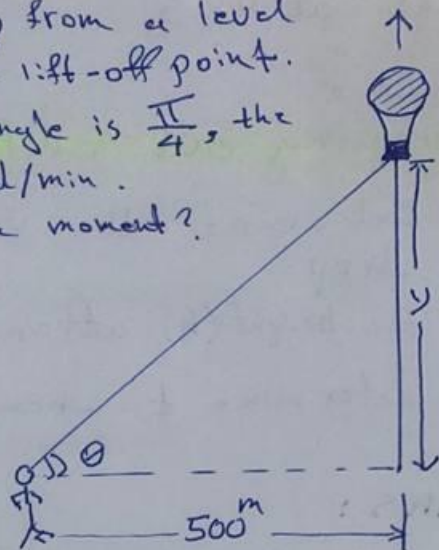 from a level
lift-off point.
angle is π/4, the
/min.
moment?
y
θ
500 m